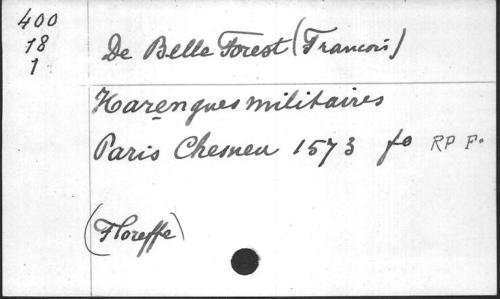 400
18
1
De Belle Forest (Francois)
Harengues militaires
Paris Chesneu 1573 fo RP F.
(Floreffe)